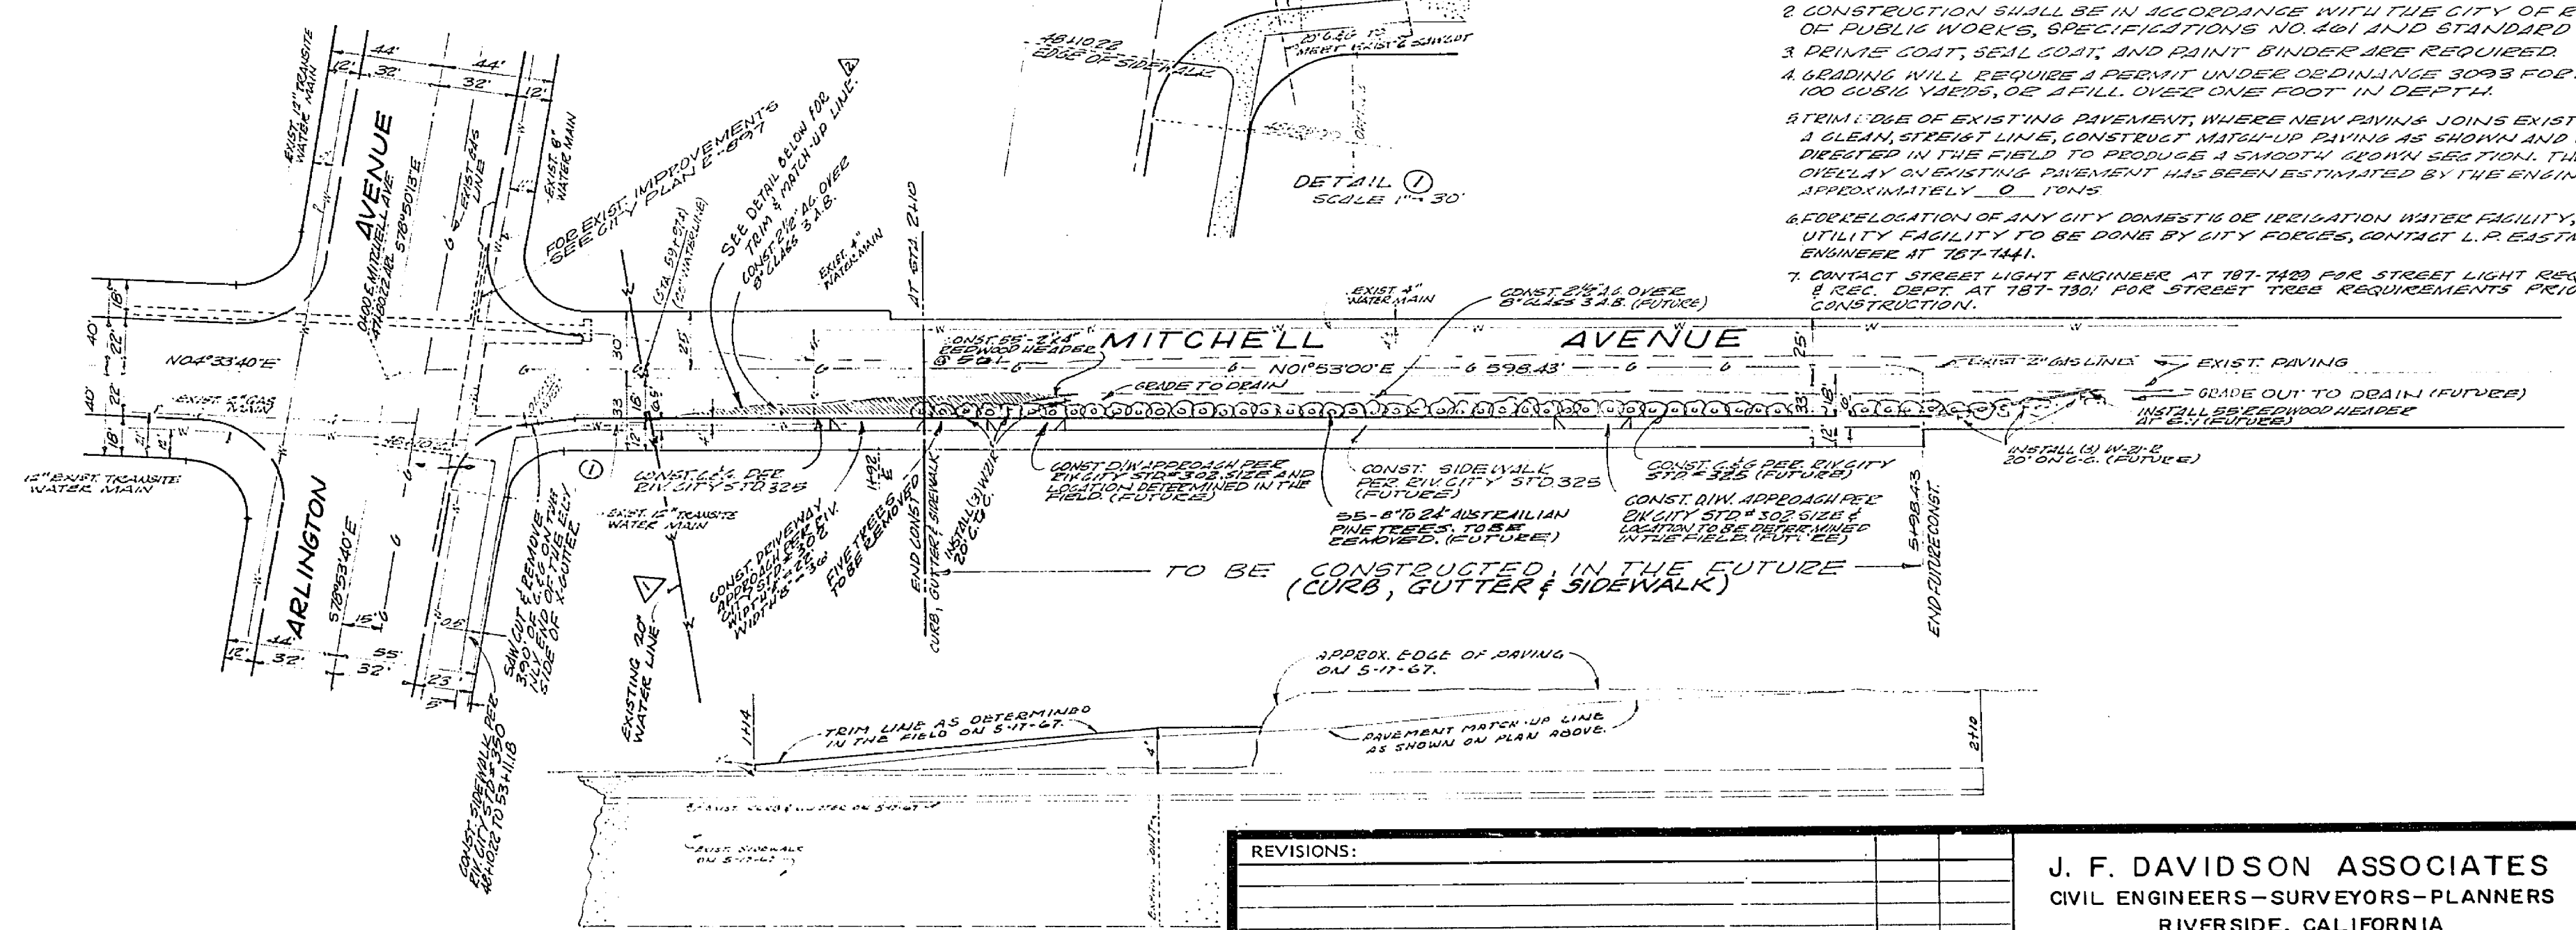 2. CONSTRUCTION SHALL BE IN ACCORDANCE WITH THE CITY OF R
OF PUBLIC WORKS, SPECIFICATIONS NO. 461 AND STANDARD
3. PRIME COAT, SEAL COAT, AND PAINT BINDER ARE REQUIRED.
4. GRADING WILL REQUIRE A PERMIT UNDER ORDINANCE 3093 FOR
100 CUBIC YARDS, OR A FILL OVER ONE FOOT IN DEPTH.
5. TRIM EDGE OF EXISTING PAVEMENT, WHERE NEW PAVING JOINS EXIST
A CLEAN, STREIGT LINE, CONSTRUCT MATCH-UP PAVING AS SHOWN AND
DIRECTED IN THE FIELD TO PRODUCE A SMOOTH CROWN SECTION. TH
OVERLAY ON EXISTING PAVEMENT HAS BEEN ESTIMATED BY THE ENGIN
APPROXIMATELY 0 TONS
6. FOR RELOCATION OF ANY CITY DOMESTIC OR IRRIGATION WATER FACILITY,
UTILITY FACILITY TO BE DONE BY CITY FORCES, CONTACT L.P. EASTM
ENGINEER AT 787-7441.
7. CONTACT STREET LIGHT ENGINEER AT 787-7429 FOR STREET LIGHT REQ
& REC. DEPT. AT 787-7301 FOR STREET TREE REQUIREMENTS PRIO
CONSTRUCTION.
48+10.22
EDGE OF SIDEWALK
20' C&G TO
MEET EXIST & SAWCUT
DETAIL 1
SCALE 1"=30'
44'
44'
12'
32'
32'
12'
EXIST. 12" TRANSITE
WATER MAIN
AVENUE
EXIST GAS
LINE
EXIST. 8"
WATER MAIN
FOR EXIST. IMPROVEMENTS
SEE CITY PLAN E-897
SEE DETAIL BELOW FOR
TRIM & MATCH-UP LINE. 2
CONST. 2½" AC. OVER
8" CLASS 3 A.B.
EXIST. 4"
WATER MAIN
AT STA. 2+10
EXIST. 4"
WATER MAIN
CONST. 2½" AC. OVER
8" CLASS 3 A.B. (FUTURE)
MITCHELL AVENUE
CONST. 55-2"X4"
REDWOOD HEADER
N04°33'40"E
N01°53'00"E 598.43'
GRADE TO DRAIN
EXIST 2" GAS LINE
EXIST. PAVING
GRADE OUT TO DRAIN (FUTURE)
INSTALL 55' REDWOOD HEADER
AT E.J. (FUTURE)
INSTALL (3) W-21-R
20' ON C.C. (FUTURE)
18'
22'
40'
22'
40'
18'
30'
25'
33'
12'
25'
33'
18'
12'
EXIST. 2" GAS
MAIN
12" EXIST. TRANSITE
WATER MAIN
1
CONST. C&G PER
RIV. CITY STD. 325
EXIST. 12" TRANSITE
WATER MAIN
CONST. DRIVEWAY
APPROACH PER RIV.
CITY STD. # 302
WIDTH A=22'
WIDTH B=36'
1+92
FIVE TREES
TO BE REMOVED
END CONST. OF
CURB, GUTTER & SIDEWALK
INSTALL (3) W21R
20' C. TO C.
CONST D/W APPROACH PER
RIV. CITY STD # 302. SIZE AND
LOCATION DETERMINED IN THE
FIELD. (FUTURE)
CONST. SIDEWALK
PER. RIV. CITY STD. 325
(FUTURE)
55-8" TO 24" AUSTRAILIAN
PINE TREES. TO BE
REMOVED. (FUTURE)
CONST. C.&G PER. RIV. CITY
STD. # 325 (FUTURE)
CONST. D/W. APPROACH PER
RIV. CITY STD. # 302. SIZE &
LOCATION TO BE DETERMINED
IN THE FIELD. (FUTURE)
5+98.43
END FUTURE CONST.
TO BE CONSTRUCTED IN THE FUTURE
(CURB, GUTTER & SIDEWALK)
ARLINGTON
S78°53'40"E
12'
44'
32'
55'
32'
23'
15'
SAWCUT & REMOVE
3.90' OF C.&G ON THE
N'LY. END OF THE E'LY
SIDE OF X-GUTTER
CONST. SIDEWALK PER
RIV. CITY STD. # 350
48+10.22 TO 53+11.18
1
EXISTING 20"
WATER LINE
APPROX. EDGE OF PAVING
ON 5-17-67.
1+14
TRIM LINE AS DETERMINED
IN THE FIELD ON 5-17-67.
4'
PAVEMENT MATCH-UP LINE
AS SHOWN ON PLAN ABOVE.
2+10
EXIST. SIDEWALK
ON 5-17-67
REVISIONS:
J. F. DAVIDSON ASSOCIATES
CIVIL ENGINEERS–SURVEYORS–PLANNERS
RIVERSIDE, CALIFORNIA